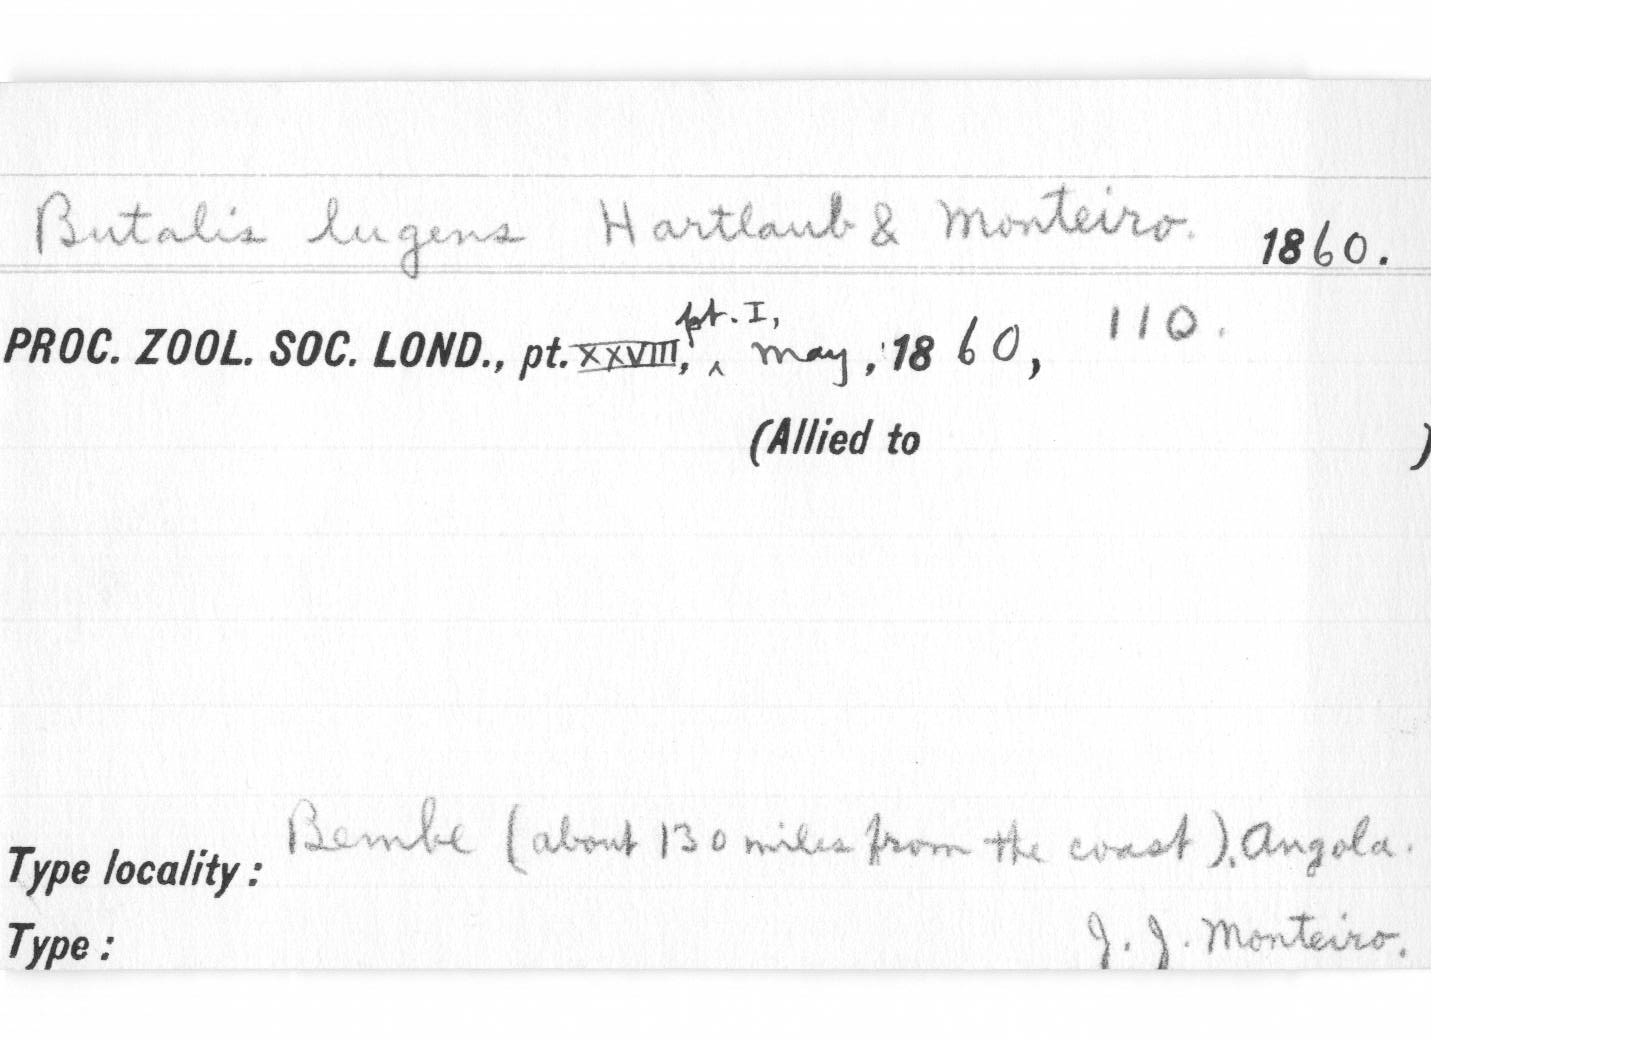 Butalis lugens Hartlaub & Monteiro. 1860.
pt. I,
PROC. ZOOL. SOC. LOND., pt. XXVIII, ^ May, 1860, 110.
(Allied to )
Type locality: Bembe (about 130 miles from the coast), Angola.
Type: J. J. Monteiro.